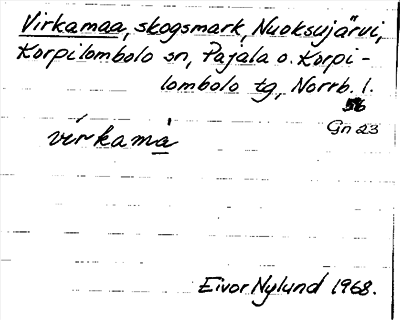 Virkamaa, skogsmark, Nuoksujärvi,
Korpilombolo sn, Pajala o. Korpi-
lombolo tg, Norrb. l.
56
Gn 23
vìrkamá
Eivor Nylund 1968.